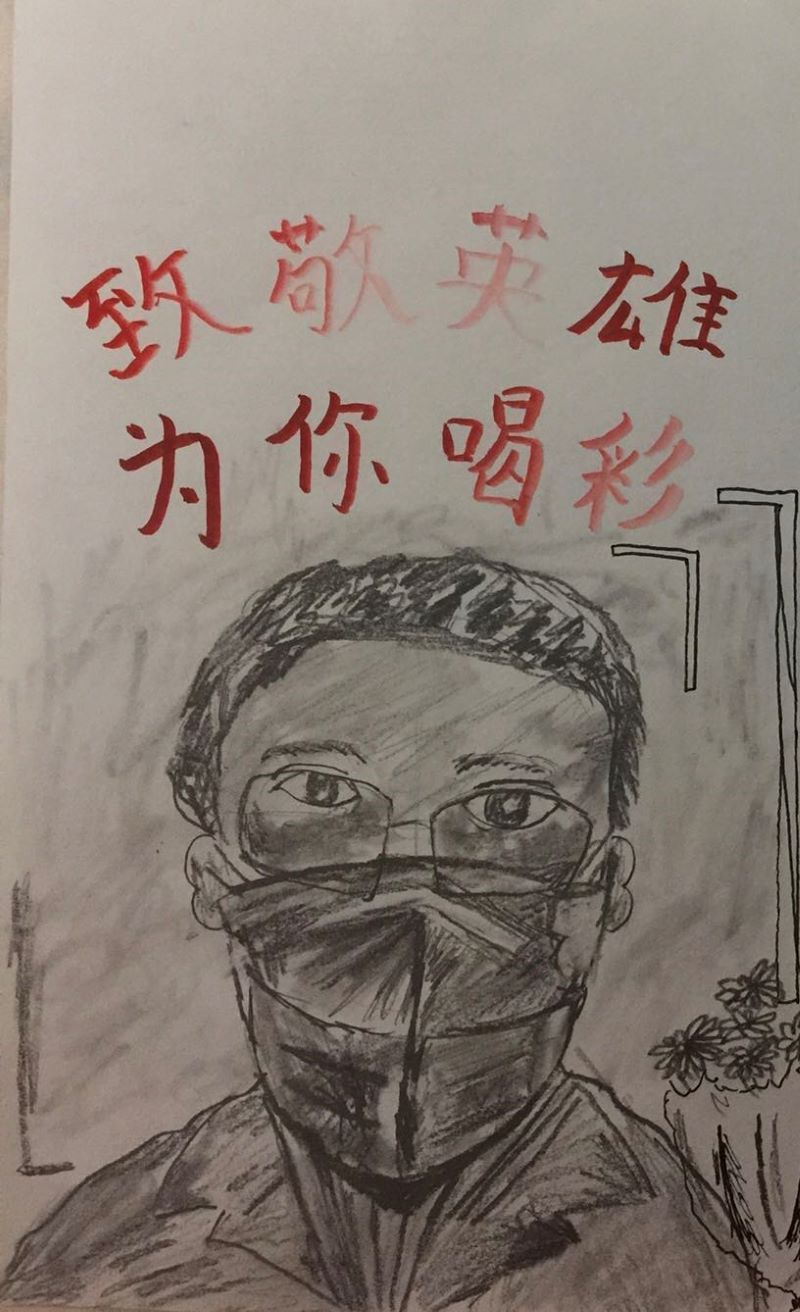 致敬英雄
为你喝彩